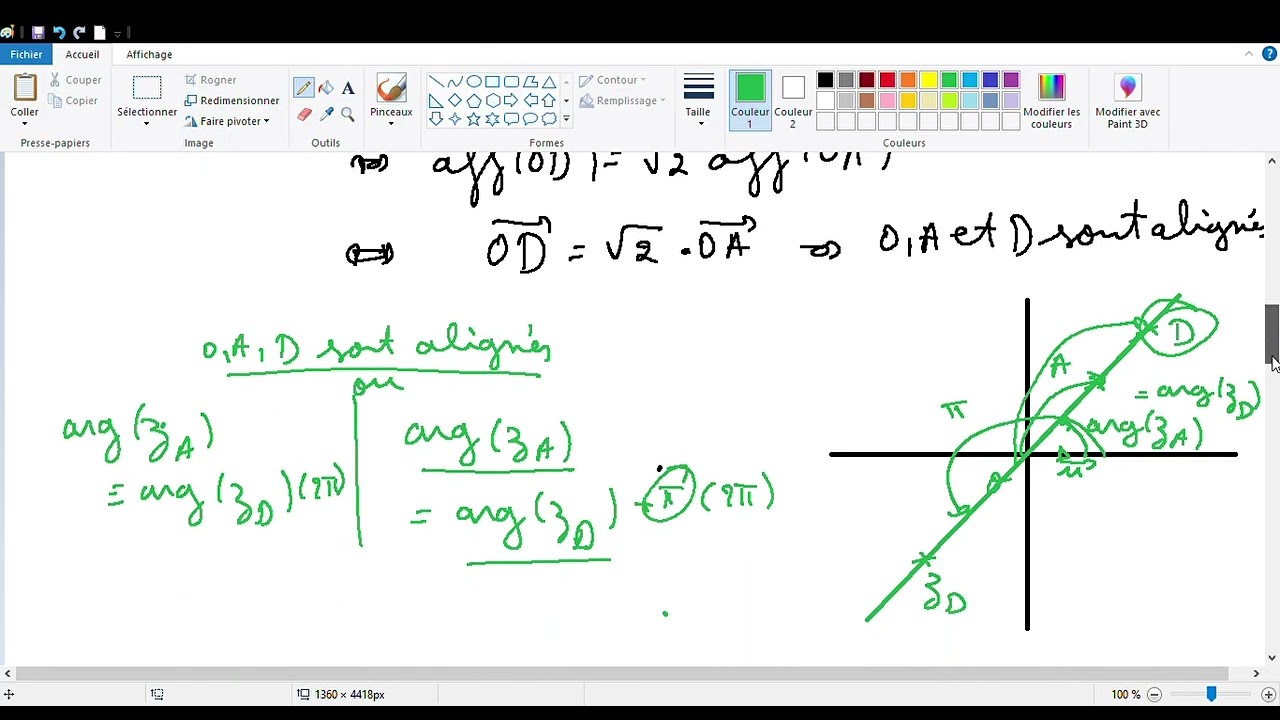 Fichier Accueil Affichage
Coller
Couper
Copier
Presse-papiers
Sélectionner
Rogner
Redimensionner
Faire pivoter
Image
A
Outils
Pinceaux
Contour
Remplissage
Formes
Taille
Couleur 1
Couleur 2
Modifier les couleurs
Couleurs
Modifier avec Paint 3D
⇔ aff(OD) = √2 aff(OA)
⇔ OD = √2 . OA ⇒ O, A et D sont alignés
O, A, D sont alignés
ou
arg(zA)
= arg(zD) (2π)
arg(zA)
= arg(zD) + π (2π)
D
A
= arg(zD)
arg(zA)
π
u
zD
1360 × 4418px
100 %